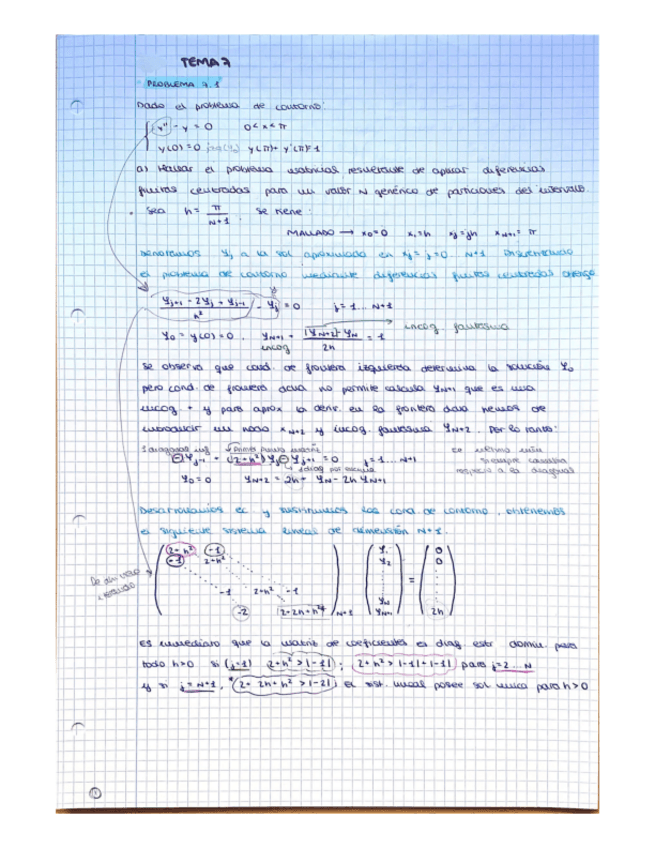 TEMA 7
PROBLEMA 7.1
Dado el problema de contorno:
y'' - y = 0 0 < x < π
y(0) = 0 y(π) + y'(π) = 1
a) Hallar el problema matricial resultante de aplicar diferencias
finitas centradas para un valor N genérico de particiones del intervalo.
Sea h = π / N+1 , se tiene:
MALLADO → x₀=0 x₁=h xj=jh xN+1 = π
Denotamos Yj a la sol aproximada en xj = j=0.. N+1
el problema de contorno mediante diferencias finitas centradas
Yj+1 - 2Yj + Yj-1 / h² - Yj = 0 j = 1... N+1
Y₀ = y(0) = 0 YN+1 + YN+2 - YN / 2h = 1 incog fantasma
incog
Se observa que cond. de frontera izquierda determina la solución Y₀
pero cond. de frontera dcha no permite calcula YN+1 que es una
incog. + y para aprox la deriv. en la frontera dcha hemos de
introducir un nodo xN+2 y incog. fantasma YN+2 . Por lo tanto:
1 diagonal inf
-Yj-1 + (2+h²)Yj - Yj+1 = 0 j=1... N+1
siempre
respecto a la diagonal
Y₀ = 0 YN+2 = 2h + YN - 2h YN+1
Desarrollamos ec y sustituimos las cond de contorno, obtenemos
el siguiente sistema lineal de dimensión N+1.
2+h² -1 Y₁ 0
-1 2+h² Y₂ 0
-1 2+h² -1 =
YN
-2 2+2h+h² N+1 YN+1 2h
Es inmediato que la matriz de coeficientes es diag estr domin. para
todo h>0 si (j=1) 2+h² > |-1| ; 2+h² > |-1| + |-1| para j=2... N
y si j=N+1, 2+2h+h² > |-2| ; El sist. lineal posee sol unica para h>0
1